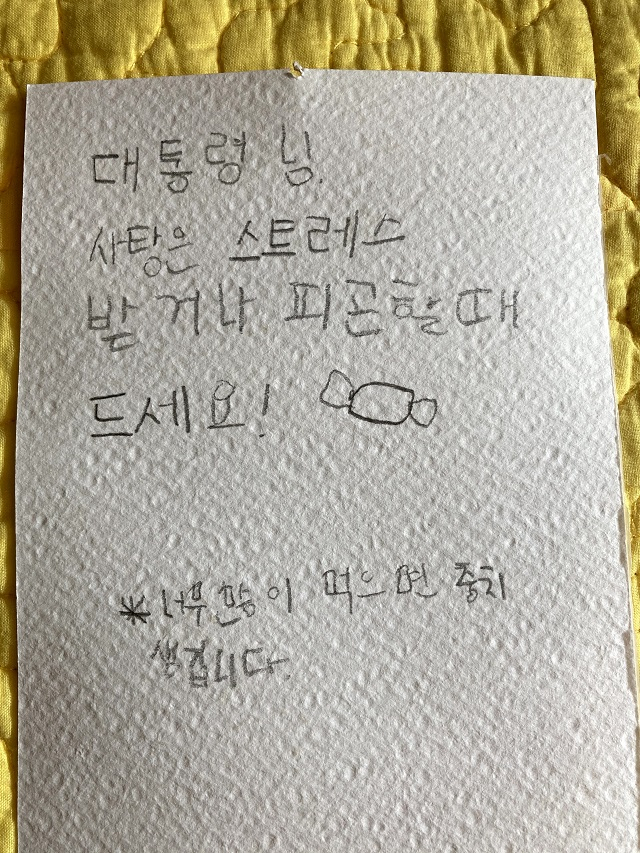 대통령 님.
사탕은 스트레스
받거나 피곤할 때
드세요!
*너무 많이 먹으면 충치
생깁니다.